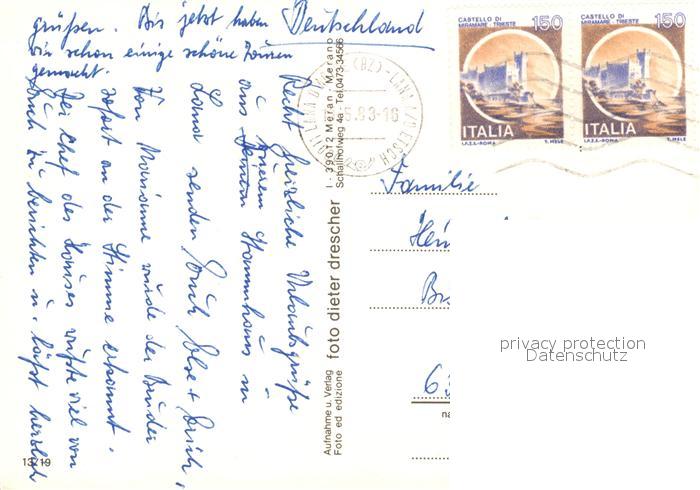 Recht herzliche Urlaubsgrüße
aus Eurem Stammhaus in
Lana senden Euch Else + Erich,
Von Marianne wurde der Bruder
sofort an der Stimme erkannt.
Der Chef des Hauses wußte viel von
Euch zu berichten u. läßt herzlich
grüßen. Bis jetzt haben
wir schon einige schöne Touren
gemacht.
Deutschland
CASTELLO DI
MIRAMARE - TRIESTE
150
ITALIA
I.P.Z.S.-ROMA
T. MELE
CASTELLO DI
MIRAMARE - TRIESTE
150
ITALIA
I.P.Z.S.-ROMA
T. MELE
(BZ)
83-16
Familie
63
na
Aufnahme u. Verlag
Foto ed edizione
foto dieter drescher
I - 39012 Meran - Merano
Schallhofweg 4a - Tel. 0473-34566
13/19
privacy protection
Datenschutz